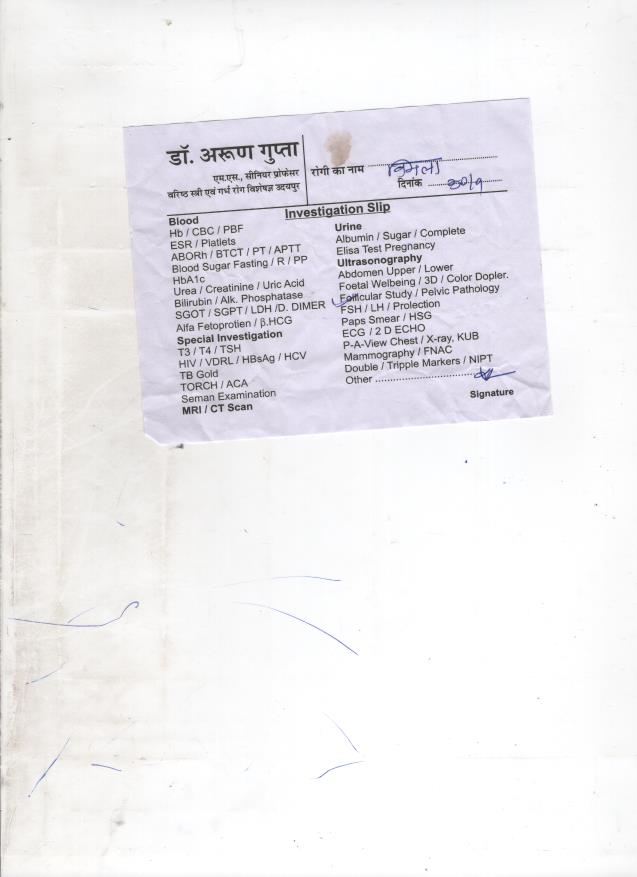 डॉ. अरूण गुप्ता
एम.एस., सीनियर प्रोफेसर
वरिष्ठ स्त्री एवं गर्भ रोग विशेषज्ञ उदयपुर
रोगी का नाम विमला
दिनांक 20/9
Investigation Slip
Blood
Hb / CBC / PBF
ESR / Platlets
ABORh / BTCT / PT / APTT
Blood Sugar Fasting / R / PP
HbA1c
Urea / Creatinine / Uric Acid
Bilirubin / Alk. Phosphatase
SGOT / SGPT / LDH /D. DIMER
Alfa Fetoprotien / β.HCG
Special Investigation
T3 / T4 / TSH
HIV / VDRL / HBsAg / HCV
TB Gold
TORCH / ACA
Seman Examination
MRI / CT Scan
Urine
Albumin / Sugar / Complete
Elisa Test Pregnancy
Ultrasonography
Abdomen Upper / Lower
Foetal Welbeing / 3D / Color Dopler.
Follicular Study / Pelvic Pathology
FSH / LH / Prolection
Paps Smear / HSG
ECG / 2 D ECHO
P-A-View Chest / X-ray, KUB
Mammography / FNAC
Double / Tripple Markers / NIPT
Other
Signature